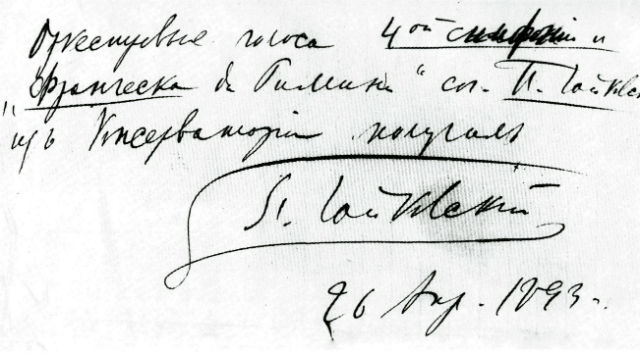 Оркестровые голоса 4ой симфоніи и
„Франческа да Римини“ соч. П. Чайковск
изъ Консерваторіи получилъ
П. Чайковскій
26 Апр. 1893 г.